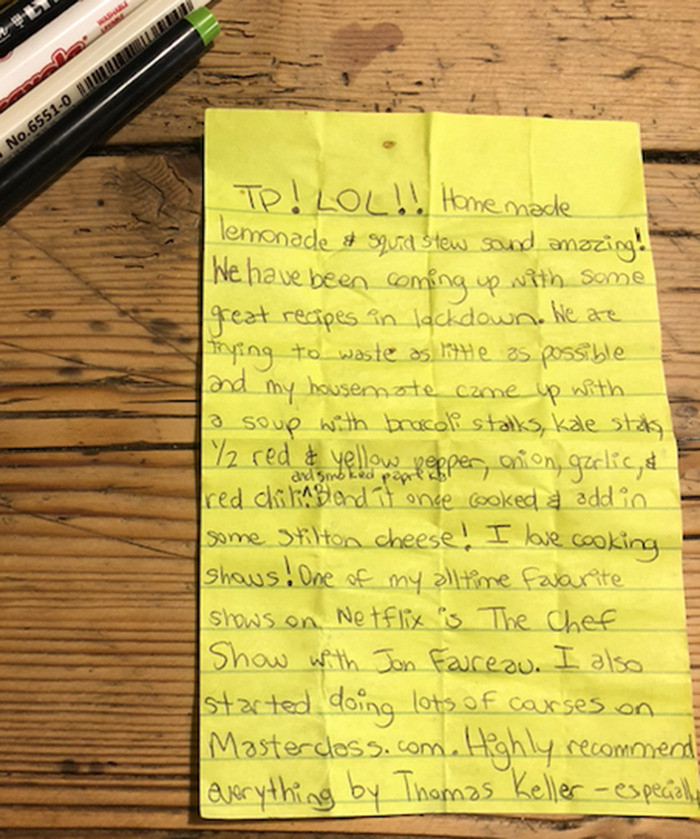 WASHABLE
No.6551-0
TP! LOL!! Homemade
lemonade & squid stew sound amazing!
We have been coming up with some
great recipes in lockdown. We are
trying to waste as little as possible
and my housemate came up with
a soup with brocoli stalks, kale stalks,
1/2 red & yellow pepper, onion, garlic, &
and smoked paprika
red chili. ^ Blend it once cooked & add in
some stilton cheese! I love cooking
shows! One of my alltime favourite
shows on Netflix is The Chef
Show with Jon Favreau. I also
started doing lots of courses on
Masterclass.com. Highly recommend
everything by Thomas Keller - especially